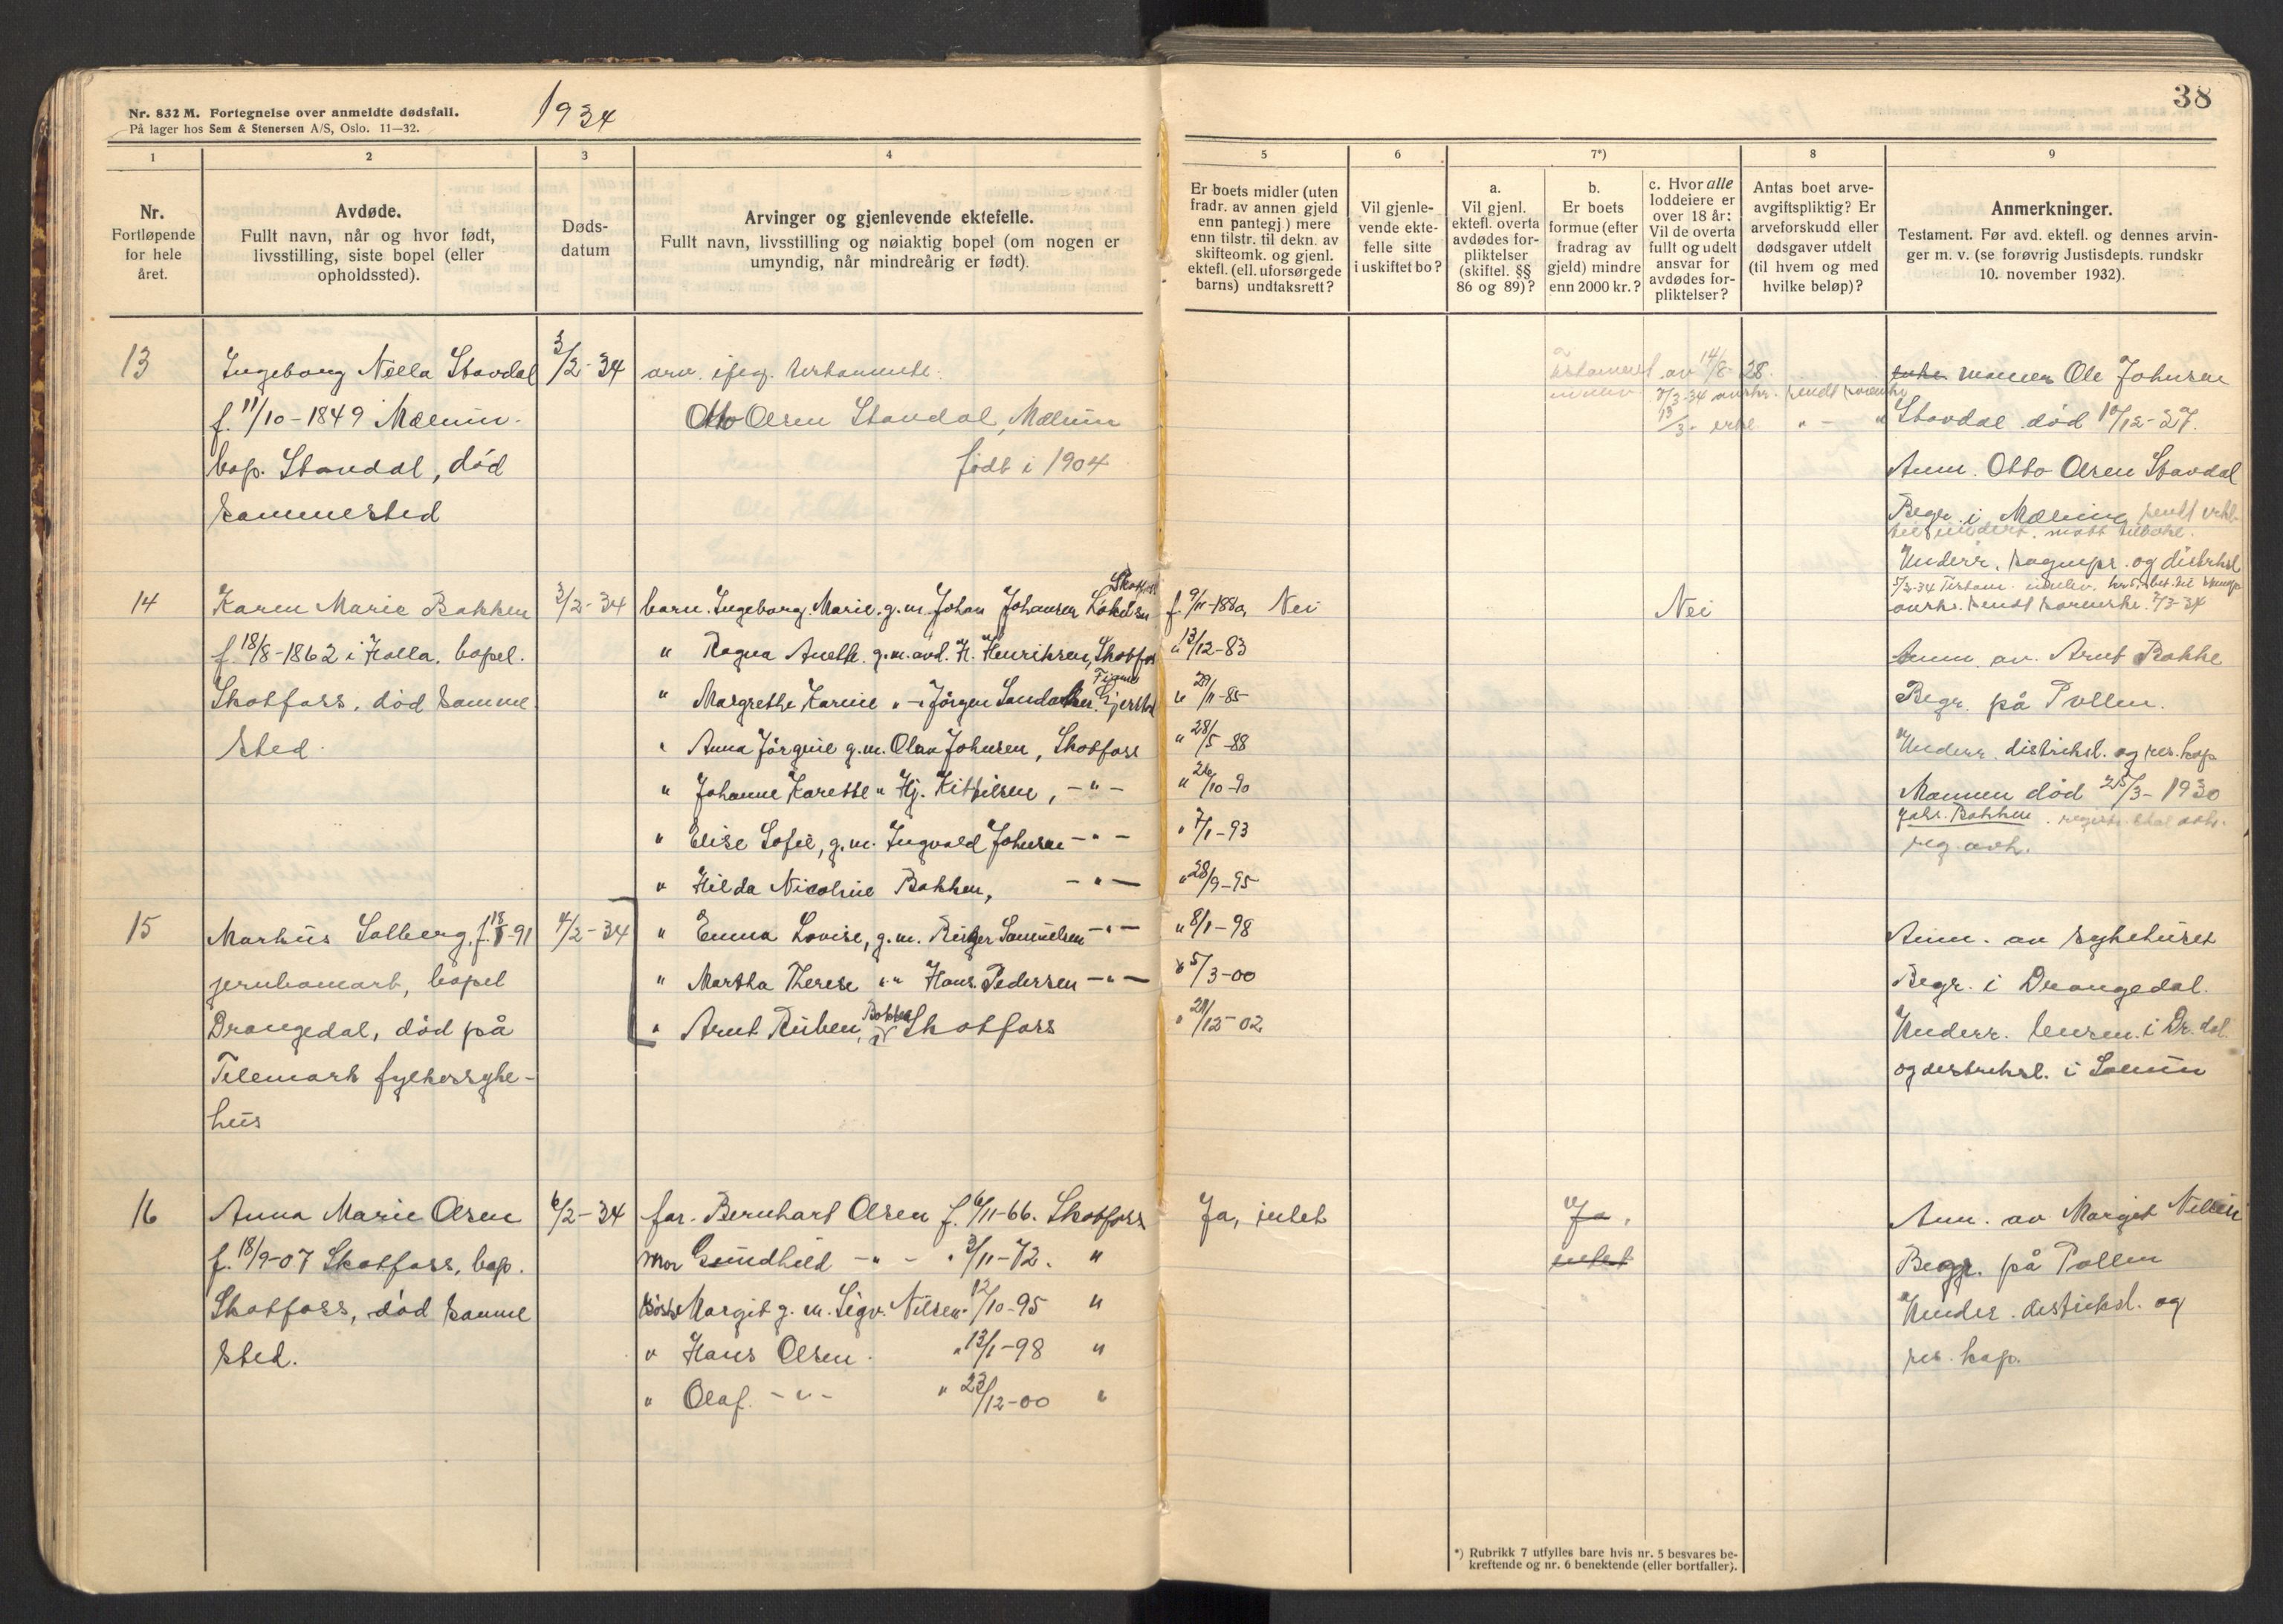 Nr. 832 M. Fortegnelse over anmeldte dødsfall.
På lager hos Sem & Stenersen A/S, Oslo. 11—32.
1934
38
1
2
3
4
5
6
7*)
8
9
Nr.
Fortløpende
for hele
året.
Avdøde.
Fullt navn, når og hvor født,
livsstilling, siste bopel (eller
opholdssted).
Døds-
datum
Arvinger og gjenlevende ektefelle.
Fullt navn, livsstilling og nøiaktig bopel (om nogen er
umyndig, når mindreårig er født).
Er boets midler (uten
fradr. av annen gjeld
enn pantegj.) mere
enn tilstr. til dekn. av
skifteomk. og gjenl.
ektefl. (ell. uforsørgede
barns) undtaksrett?
Vil gjenle-
vende ekte-
felle sitte
i uskiftet bo?
a.
Vil gjenl.
ektefl. overta
avdødes for-
pliktelser
(skiftel. §§
86 og 89)?
b.
Er boets
formue (efter
fradrag av
gjeld) mindre
enn 2000 kr.?
c. Hvor alle
loddeiere er
over 18 år:
Vil de overta
fullt og udelt
ansvar for
avdødes for-
pliktelser?
Antas boet arve-
avgiftspliktig? Er
arveforskudd eller
dødsgaver utdelt
(til hvem og med
hvilke beløp)?
Anmerkninger.
Testament. Før avd. ektefl. og dennes arvin-
ger m. v. (se forøvrig Justisdepts. rundskr
10. november 1932).
13
Ingeborg Nella Stavdal
f. 11/10-1849 Mælum.
bop. Stavdal, død
sammested
3/2-34
arv. iføg. testamente.
Otto Olsen Stavdal, Mælum
født i 1904
Testament av 14/8-28.
mannen Ole Johnsen
Stavdal død 10/12-27.
Anm. Otto Olsen Stavdal
Begr. i Mælum
Underr. sogнepr. og distrksl
14
Karen Marie Bakken
f. 18/8-1862 i Holla. bopel.
Skotfoss, død samme
sted.
3/2-34
barn. Ingeborg Marie. g.m. Johan Johansen Skotfoss f. 9/11-1880,
" Ragna Anette. g.m. avd. H. Henriksen, Skotfos " 13/12-83
" Margrethe Karine " - Jørgen " 29/11-85
" Anna Jørgine g.m. Olav Johnsen, Skotfoss " 28/5-88
" Johanne Karette " Hj. Kittilsen, -"- " 26/10-90
" Elise Sofie, g.m. Ingvald Johnsen -"- " 7/1-93
" Hilda Nicoline Bakken, -"- " 28/9-95
" Emma Lovise, g.m. Birger Samuelsen -"- " 8/1-98
" Martha Therese "-" Hans Pedersen -"- " 5/3-00
" Arnt Ruben, Bakken Skotfoss " 29/12-02
Nei
Nei
Anm. av. Arnt Bakke
Begr. på Pollen.
Underr. distriksl. og res. kap
Mannen død 25/3-1930
15
Markus Solberg, f. 18/8-91
jernbanearb, bopel
Drangedal, død på
Telemark fylkessyke-
hus
4/2-34
Anm. av sykehuset
Begr. i Drangedal.
Underr. lensm. i Dr. dal.
og destriksl. i Solum
16
Anna Marie Olsen
f. 18/9-07 Skotfoss, bop.
Skotfoss, død samme
sted.
6/2-34
far. Bernhart Olsen f. 6/11-66. Skotfoss
mor Gundhild -"- " 3/11-72. "
søsk Margit g.m. Sigv. Nilsen " 12/10-95 "
" Hans Olsen. " 13/1-98 "
" Olaf. -"- " 23/12-00 "
Ja, intet
Ja.
intet
Anm. av Margit Nilsen
Begr. på Pollen
Under. distriksl. og
res. kap.
*) Rubrikk 7 utfylles bare hvis nr. 5 besvares be-
kreftende og nr. 6 benektende (eller bortfaller).